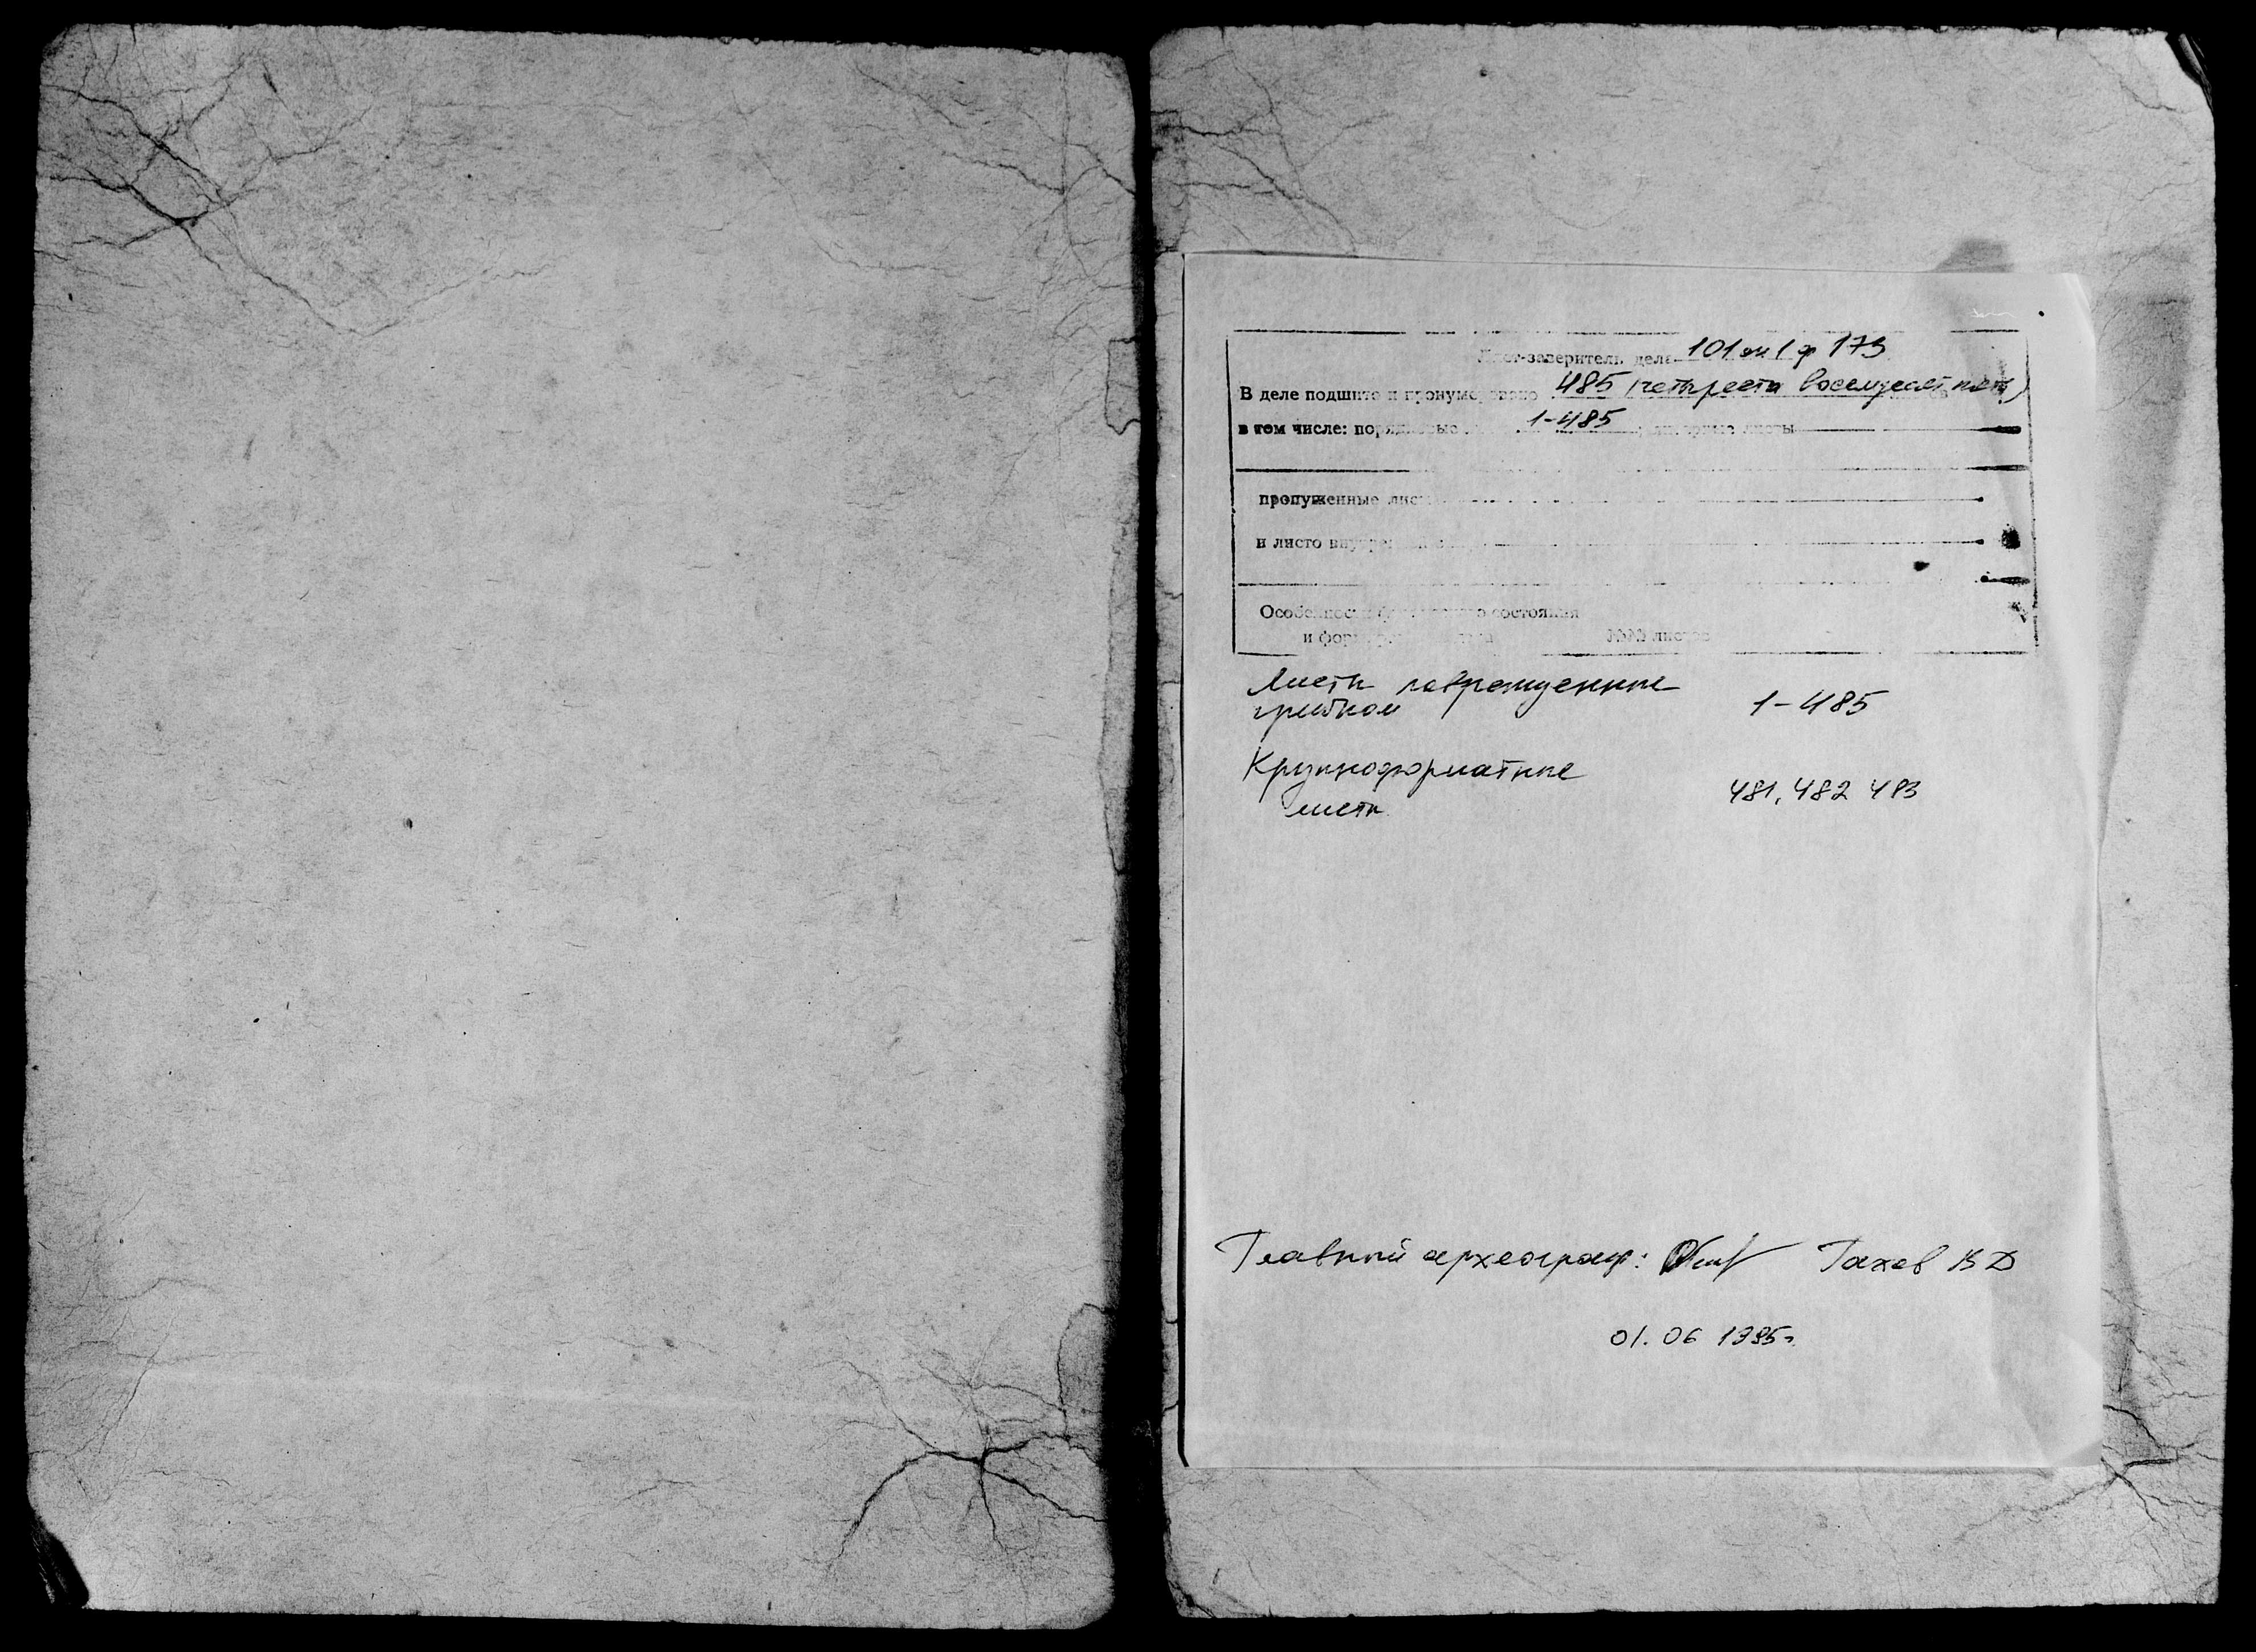 Лист-заверитель дела 101 оп 1 ф 173
В деле подшито и пронумеровано 485 (четыреста восемдесят пять)
в том числе: порядковые 1-485; литерные листы
пропущенные листы
и листо внутренней
Особенности физического состояния
и формирования дела №№ листов
Листы повреждённые
грибком 1-485
Крупноформатные
листы 481, 482 483
Главный археограф: Гахов В Д
01. 06 1995г